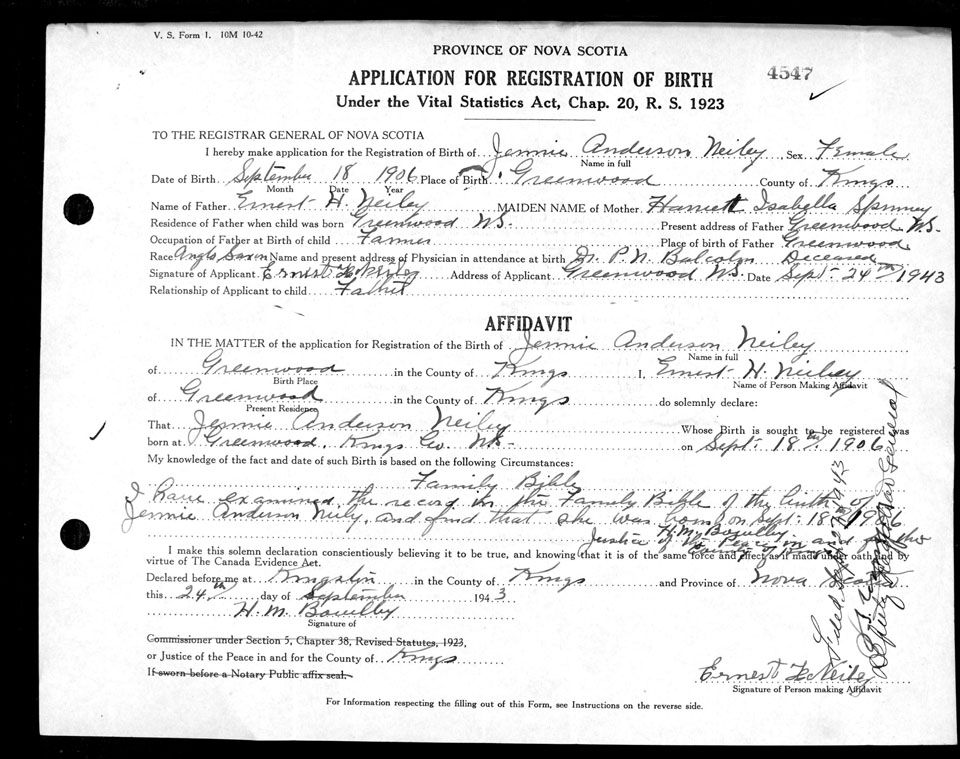 V. S. Form 1. 10M 10-42
PROVINCE OF NOVA SCOTIA
APPLICATION FOR REGISTRATION OF BIRTH 4547
Under the Vital Statistics Act, Chap. 20, R. S. 1923
TO THE REGISTRAR GENERAL OF NOVA SCOTIA
I hereby make application for the Registration of Birth of Jennie Anderson Neiley Sex Female
Name in full
Date of Birth September 18 1906 Place of Birth Greenwood County of Kings
Month Date Year
Name of Father Ernest H. Neiley MAIDEN NAME of Mother Harriett Isabella Spinney
Residence of Father when child was born Greenwood NS. Present address of Father Greenwood NS.
Occupation of Father at Birth of child Farmer Place of birth of Father Greenwood
Race Anglo Saxon Name and present address of Physician in attendance at birth Dr. P. N. Balcolm Deceased
Signature of Applicant Ernest Address of Applicant Greenwood NS. Date Sept. 24th 1943
Relationship of Applicant to child Father
AFFIDAVIT
IN THE MATTER of the application for Registration of the Birth of Jennie Anderson Neiley
Name in full
of Greenwood in the County of Kings I, Ernest H. Neiley
Birth Place Name of Person Making Affidavit
of Greenwood in the County of Kings do solemnly declare:
Present Residence
That Jennie Anderson Neiley Whose Birth is sought to be registered was
born at Greenwood, Kings Co. NS. on Sept. 18th, 1906
My knowledge of the fact and date of such Birth is based on the following Circumstances:
Family Bible
I have examined the record in the Family Bible of the birth of
Jennie Anderson Neily, and find that she was born on Sept. 18 1906
H. M. Bowlby
Justice of the Peace in and for the
County of Kings
I make this solemn declaration conscientiously believing it to be true, and knowing that it is of the same force and effect as if made under oath and by
virtue of The Canada Evidence Act.
Declared before me at Kingston in the County of Kings and Province of Nova Scotia
this 24th day of September 1943
H. M. Bowlby
Signature of
Commissioner under Section 5, Chapter 38, Revised Statutes, 1923,
or Justice of the Peace in and for the County of Kings
If sworn before a Notary Public affix seal.
Ernest H Neiley
Signature of Person making Affidavit
For Information respecting the filling out of this Form, see Instructions on the reverse side.
Deputy Registrar General